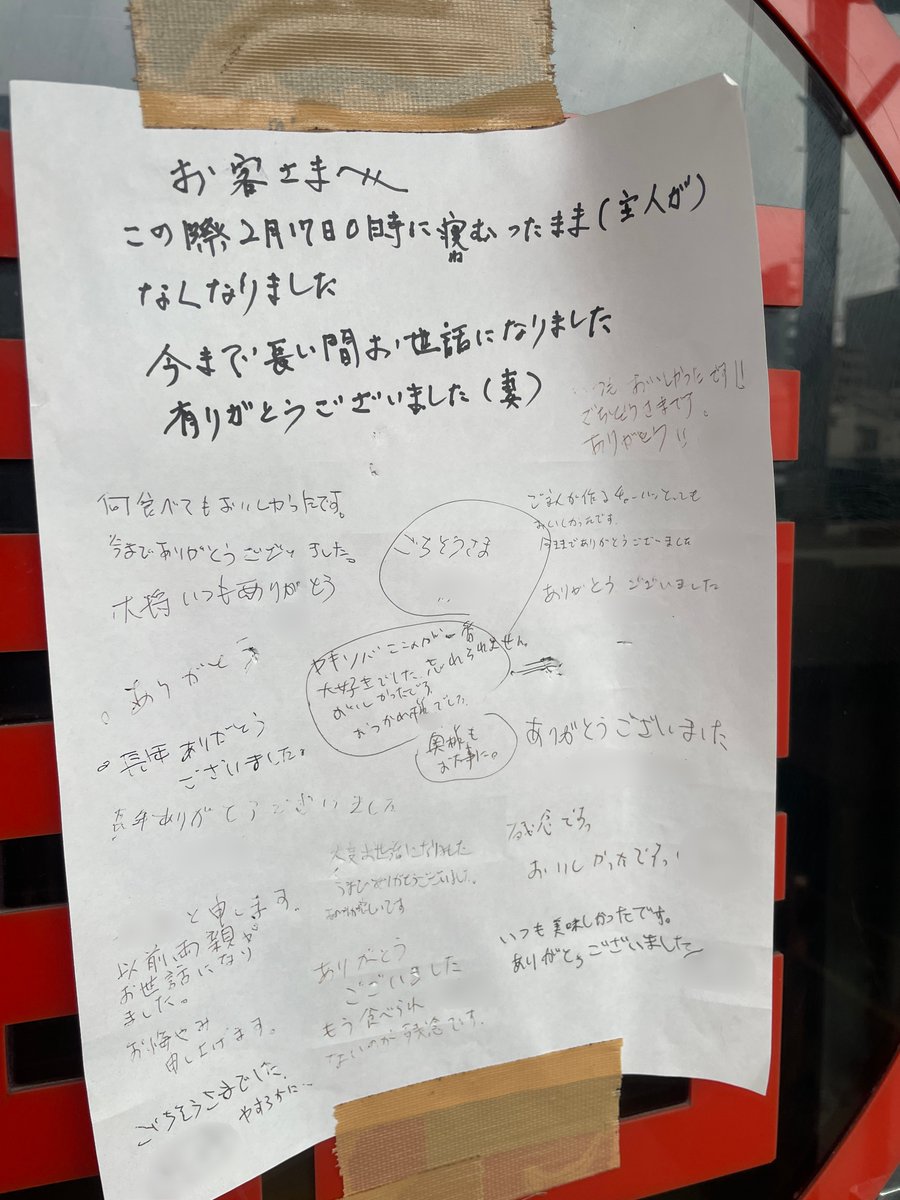 お客さまへ
この際2月17日0時に寝むったまま(主人が)
ね
なくなりました
今まで長い間お世話になりました
有りがとうございました(妻)
おいしかったです!!
ごちそうさまです。
ありがとう!!
何食べてもおいしかったです。
今までありがとうございました。
大将いつもありがとう
ごちそうさま
ご主人が作るチャーハンとっても
おいしかったです。
今までありがとうございました
ありがとうございました
ありがとう
ヤキソバここんが一番
大好きでした。忘れられません。
おいしかったです。
おつかれ様でした。
奥様も
お大事に。
長年ありがとう
ございました。
ありがとうございました
長年ありがとうございました
大変お世話になりました
ありがとうございました。
残念です。
おいしかったです。
いつも美味しかったです。
ありがとうございました
と申します。
以前両親が
お世話になり
ました。
お悔やみ
申し上げます。
ありがとう
ございました
もう食べられ
ないのが残念です。
ごちそうさまでした。
やすらかに…